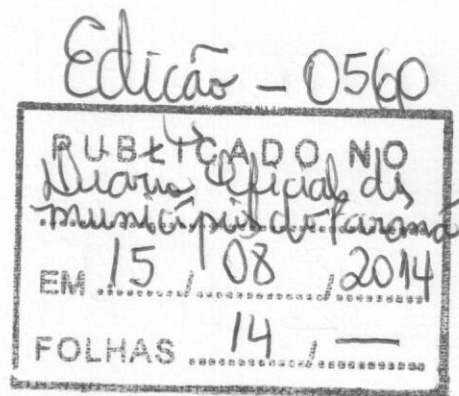 Edição - 0560
PUBLICADO NO
Diario Oficial ds
municípios do Paraná
EM 15 / 08 / 2014
FOLHAS 14 / —